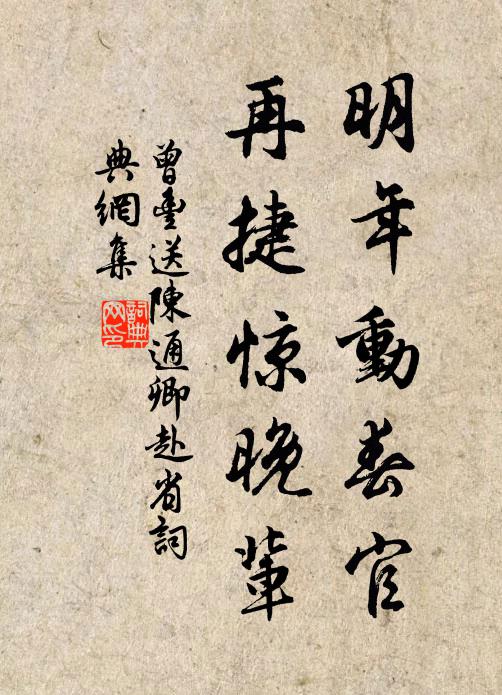 明年動春官
再捷惊晚輩
曾豐送陳通卿赴省詞
典網集
詞典网印